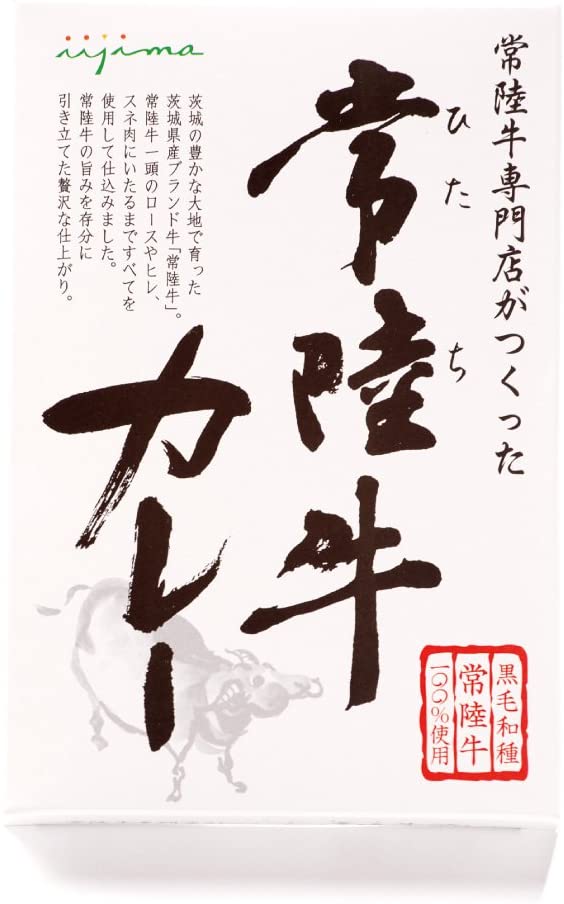 iijima
常陸牛専門店がつくった
常陸牛
ひたち
カレー
茨城の豊かな大地で育った
茨城県産ブランド牛「常陸牛」。
常陸牛一頭のロースやヒレ、
スネ肉にいたるまですべてを
使用して仕込みました。
常陸牛の旨みを存分に
引き立てた贅沢な仕上がり。
黒毛和種
常陸牛
一〇〇%使用